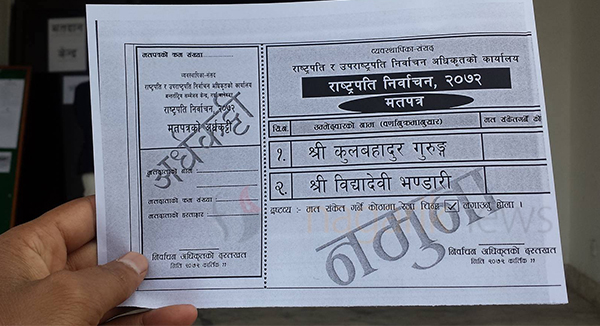 मतपत्रको क्रम संख्या
व्यवस्थापिका-संसद
राष्ट्रपति र उपराष्ट्रपति निर्वाचन अधिकृतको कार्यालय
राष्ट्रपति निर्वाचन, २०७२
मतपत्रको अर्धकट्टी
मतदाताको नाम
मतदाताको क्रम संख्या
मतदाताको हस्ताक्षर
निर्वाचन अधिकृतको दस्तखत
मिति २०७२ कार्तिक ११
व्यवस्थापिका-संसद
राष्ट्रपति र उपराष्ट्रपति निर्वाचन अधिकृतको कार्यालय
राष्ट्रपति निर्वाचन, २०७२
मतपत्र
सि.नं. उम्मेदवारको नाम (वर्णानुक्रमानुसार) मत संकेतगर्ने को
१. श्री कुलबहादुर गुरुङ्ग
२. श्री विद्यादेवी भण्डारी
द्रष्टव्य :- मत संकेत गर्ने कोठामा रेजा चिन्ह ✓ लगाउनु होला ।
नमुना
निर्वाचन अधिकृतको दस्तखत
मिति २०७२ कार्तिक ११